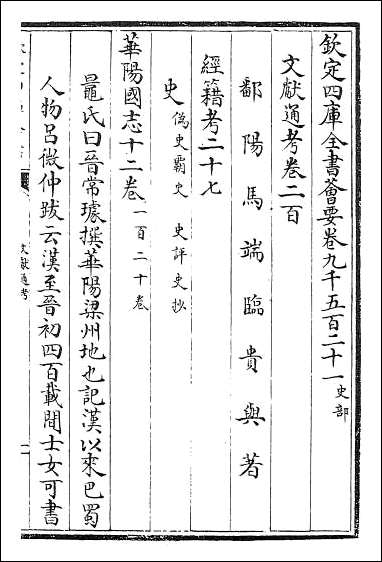 欽定四庫全書薈要卷九千五百二十一史部
文獻通考卷二百
鄱陽馬端臨貴與著
經籍考二十七
史偽史霸史 史評史抄
華陽國志十二卷一百二十卷
鼂氏曰晉常璩撰華陽梁州地也記漢以來巴蜀
人物呂微仲跋云漢至晉初四百載間士女可書
文獻通考